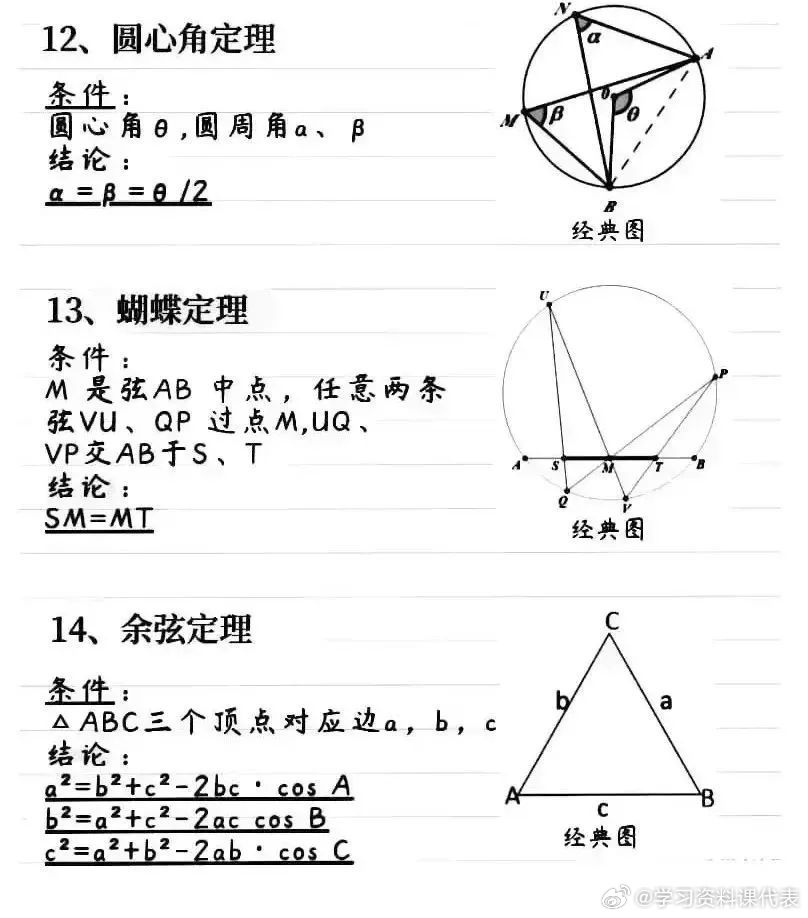 12、圆心角定理
条件：
圆心角θ,圆周角a、β
结论：
α = β = θ /2
N
α
A
M
β
O
θ
B
经典图
13、蝴蝶定理
条件：
M 是弦AB 中点，任意两条
弦VU、QP 过点M,UQ、
VP交AB于S、T
结论：
SM=MT
U
P
A
S
M
T
B
Q
V
经典图
14、余弦定理
条件：
△ABC三个顶点对应边a，b，c
结论：
a²=b²+c²-2bc · cos A
b²=a²+c²-2ac cos B
c²=a²+b²-2ab · cos C
C
b
a
A
c
B
经典图
@学习资料课代表